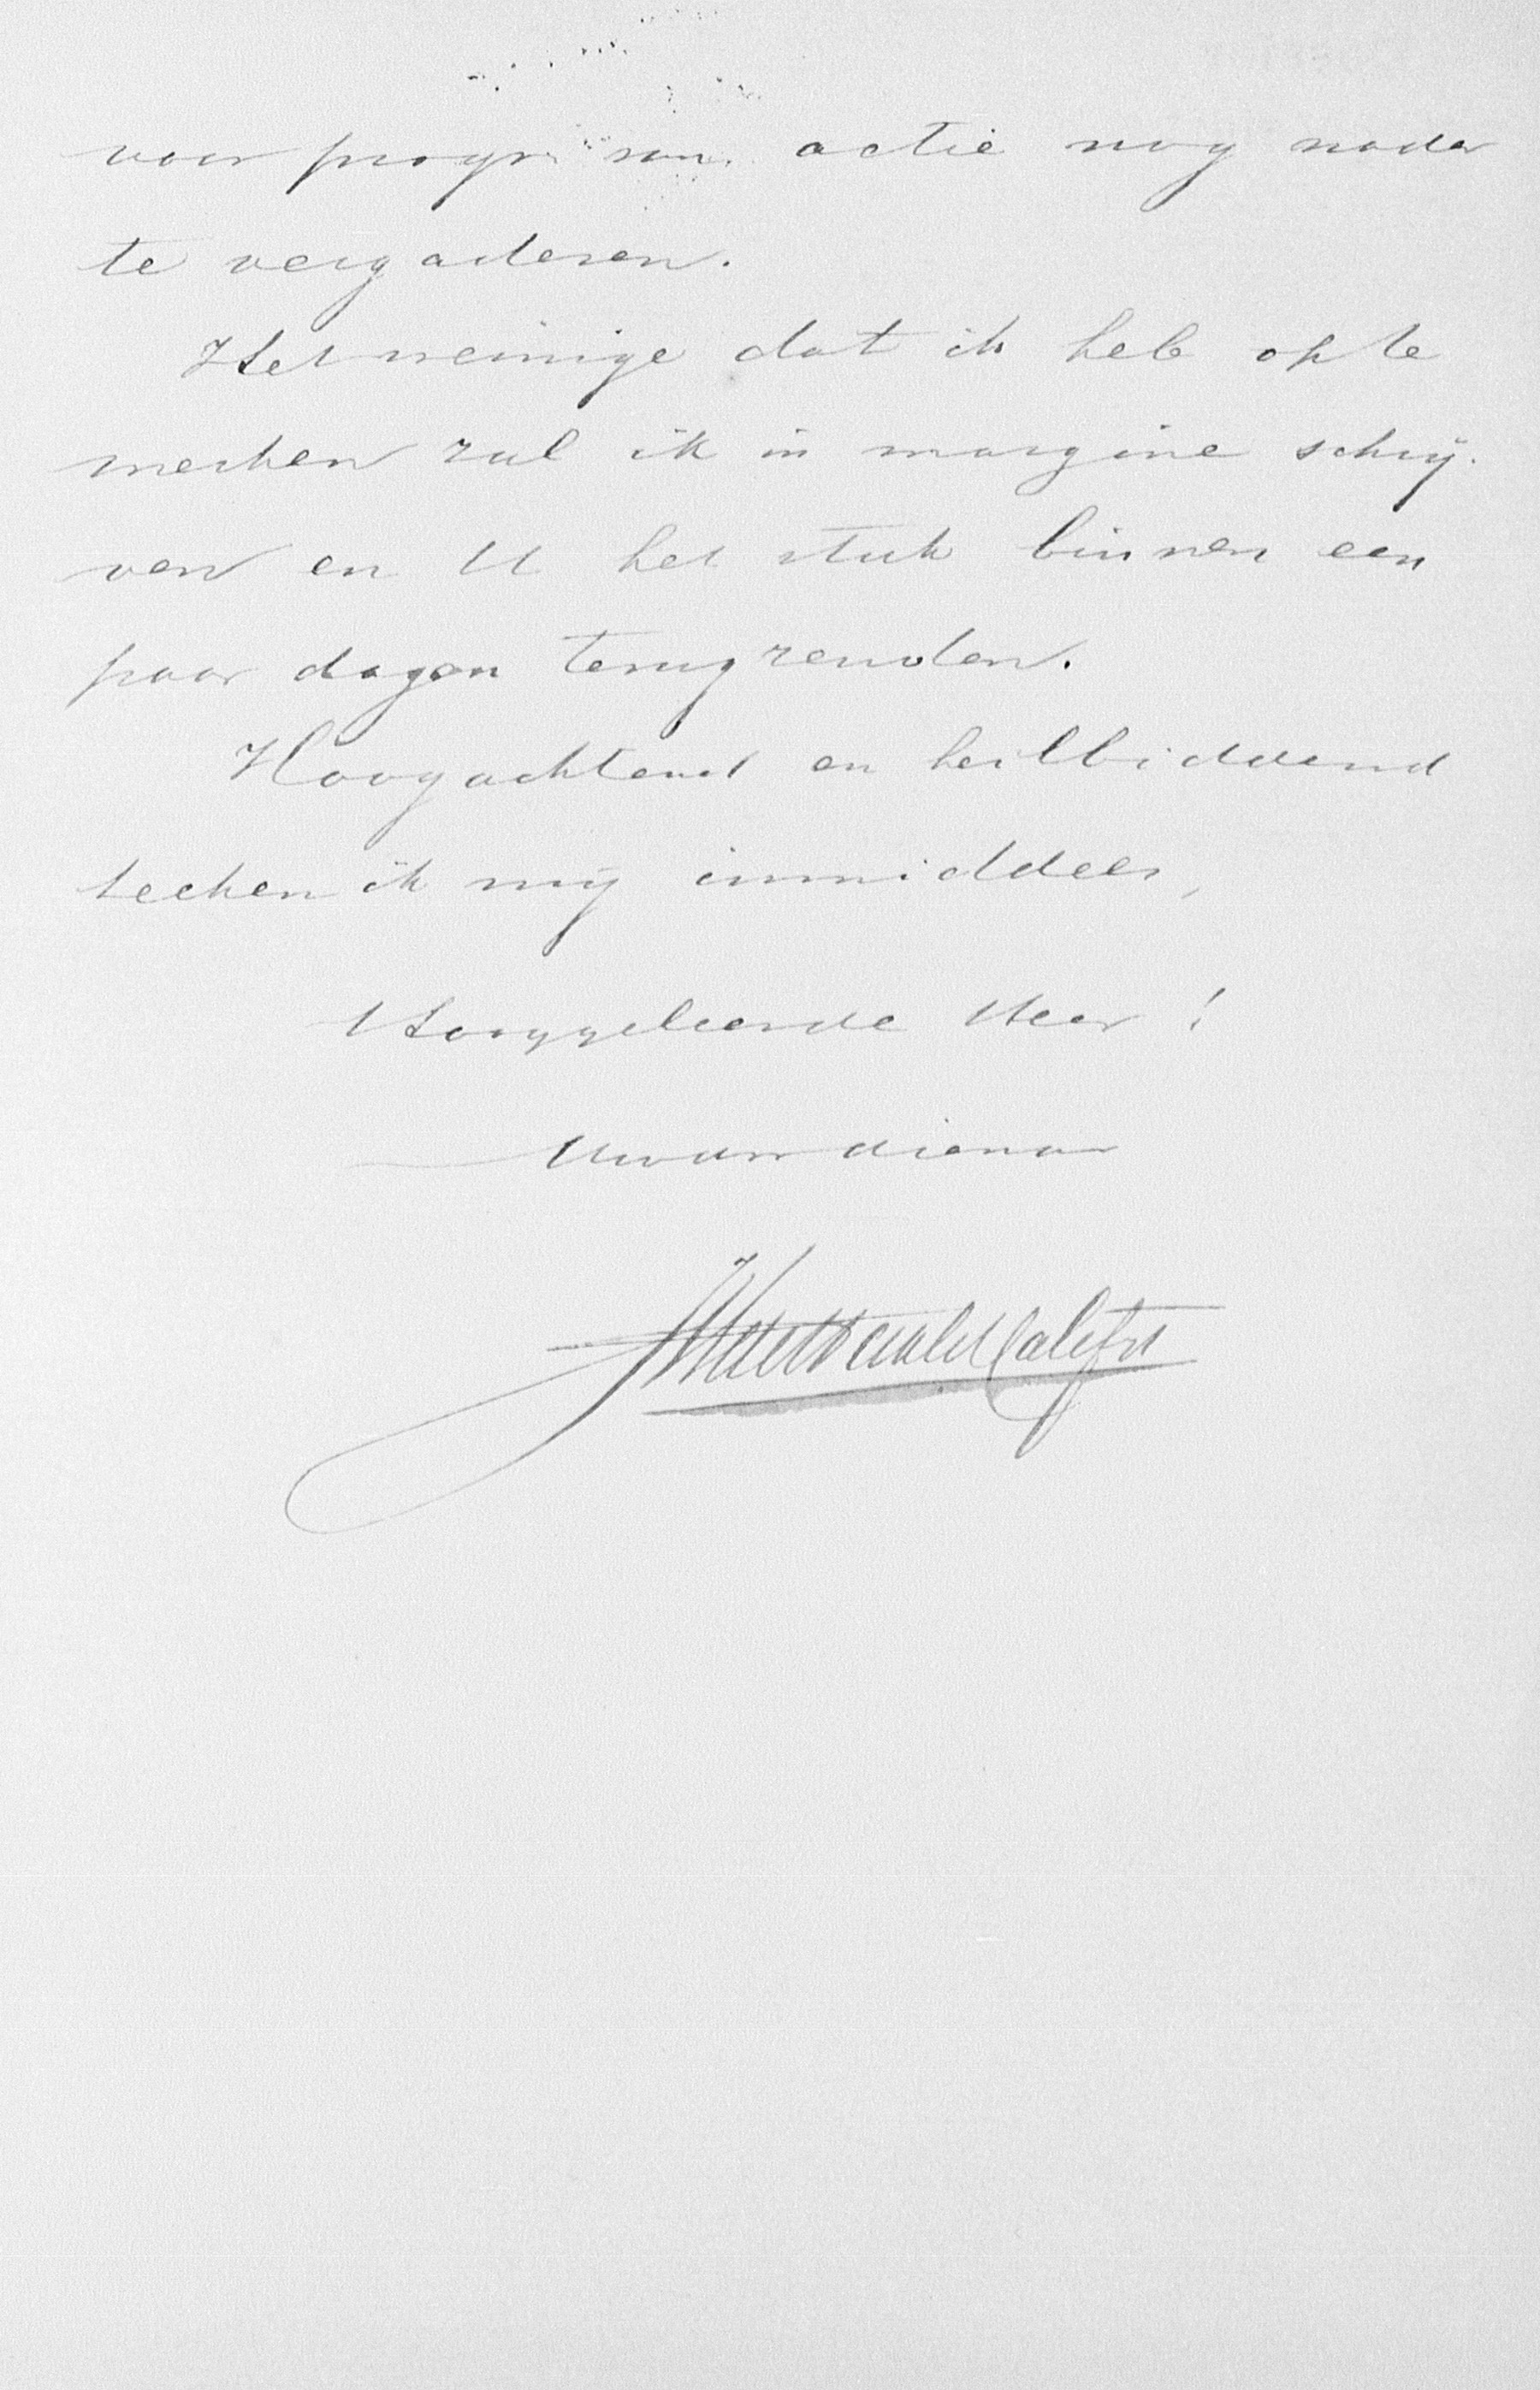 voor progr. van actie nog nader
te vergaderen.
Het weinige dat ik heb op te
merken zal ik in margine schrij-
ven en U het stuk binnen een
paar dagen terugzenden.
Hoogachtend en heilbiddend
teeken ik mij inmiddels,
Hooggeleerde Heer!
Uw dw dienaar